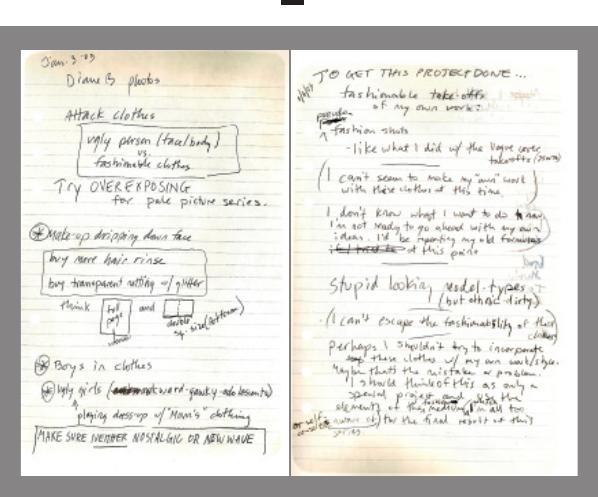 Jan. 3 '83
Diane B photos
Attack clothes
ugly person (face/body)
vs.
fashionable clothes
Try OVEREXPOSING
for pale picture series.
Make-up dripping down face
buy more hair rinse
buy transparent netting w/ glitter
think full page and
double
Boys in clothes
Ugly girls (awkward-gawky-adolescents)
playing dress-up w/ "Mom's" clothing
MAKE SURE NEITHER NOSTALGIC OR NEW WAVE
TO GET THIS PROJECT DONE...
fashionable take-offs
of my own work:
pseudo
fashion shots
-like what I did w/ the Vogue cover
takeoffs
(I can't seem to make my "own" work
with these clothes at this time.)
I don't know what I want to do now
I'm not ready to go ahead with my own
ideas. I'd be repeating my old formulas
at this point
Stupid looking model-types
(but ethnic-dirty)
(I can't escape the fashionability of these
clothes)
Perhaps I shouldn't try to incorporate
these clothes w/ my own work/style.
Maybe that's the mistake or problem.
I should think of this as only a
special project and use the
elements of the medium I'm all too
aware of for the final result of this
series